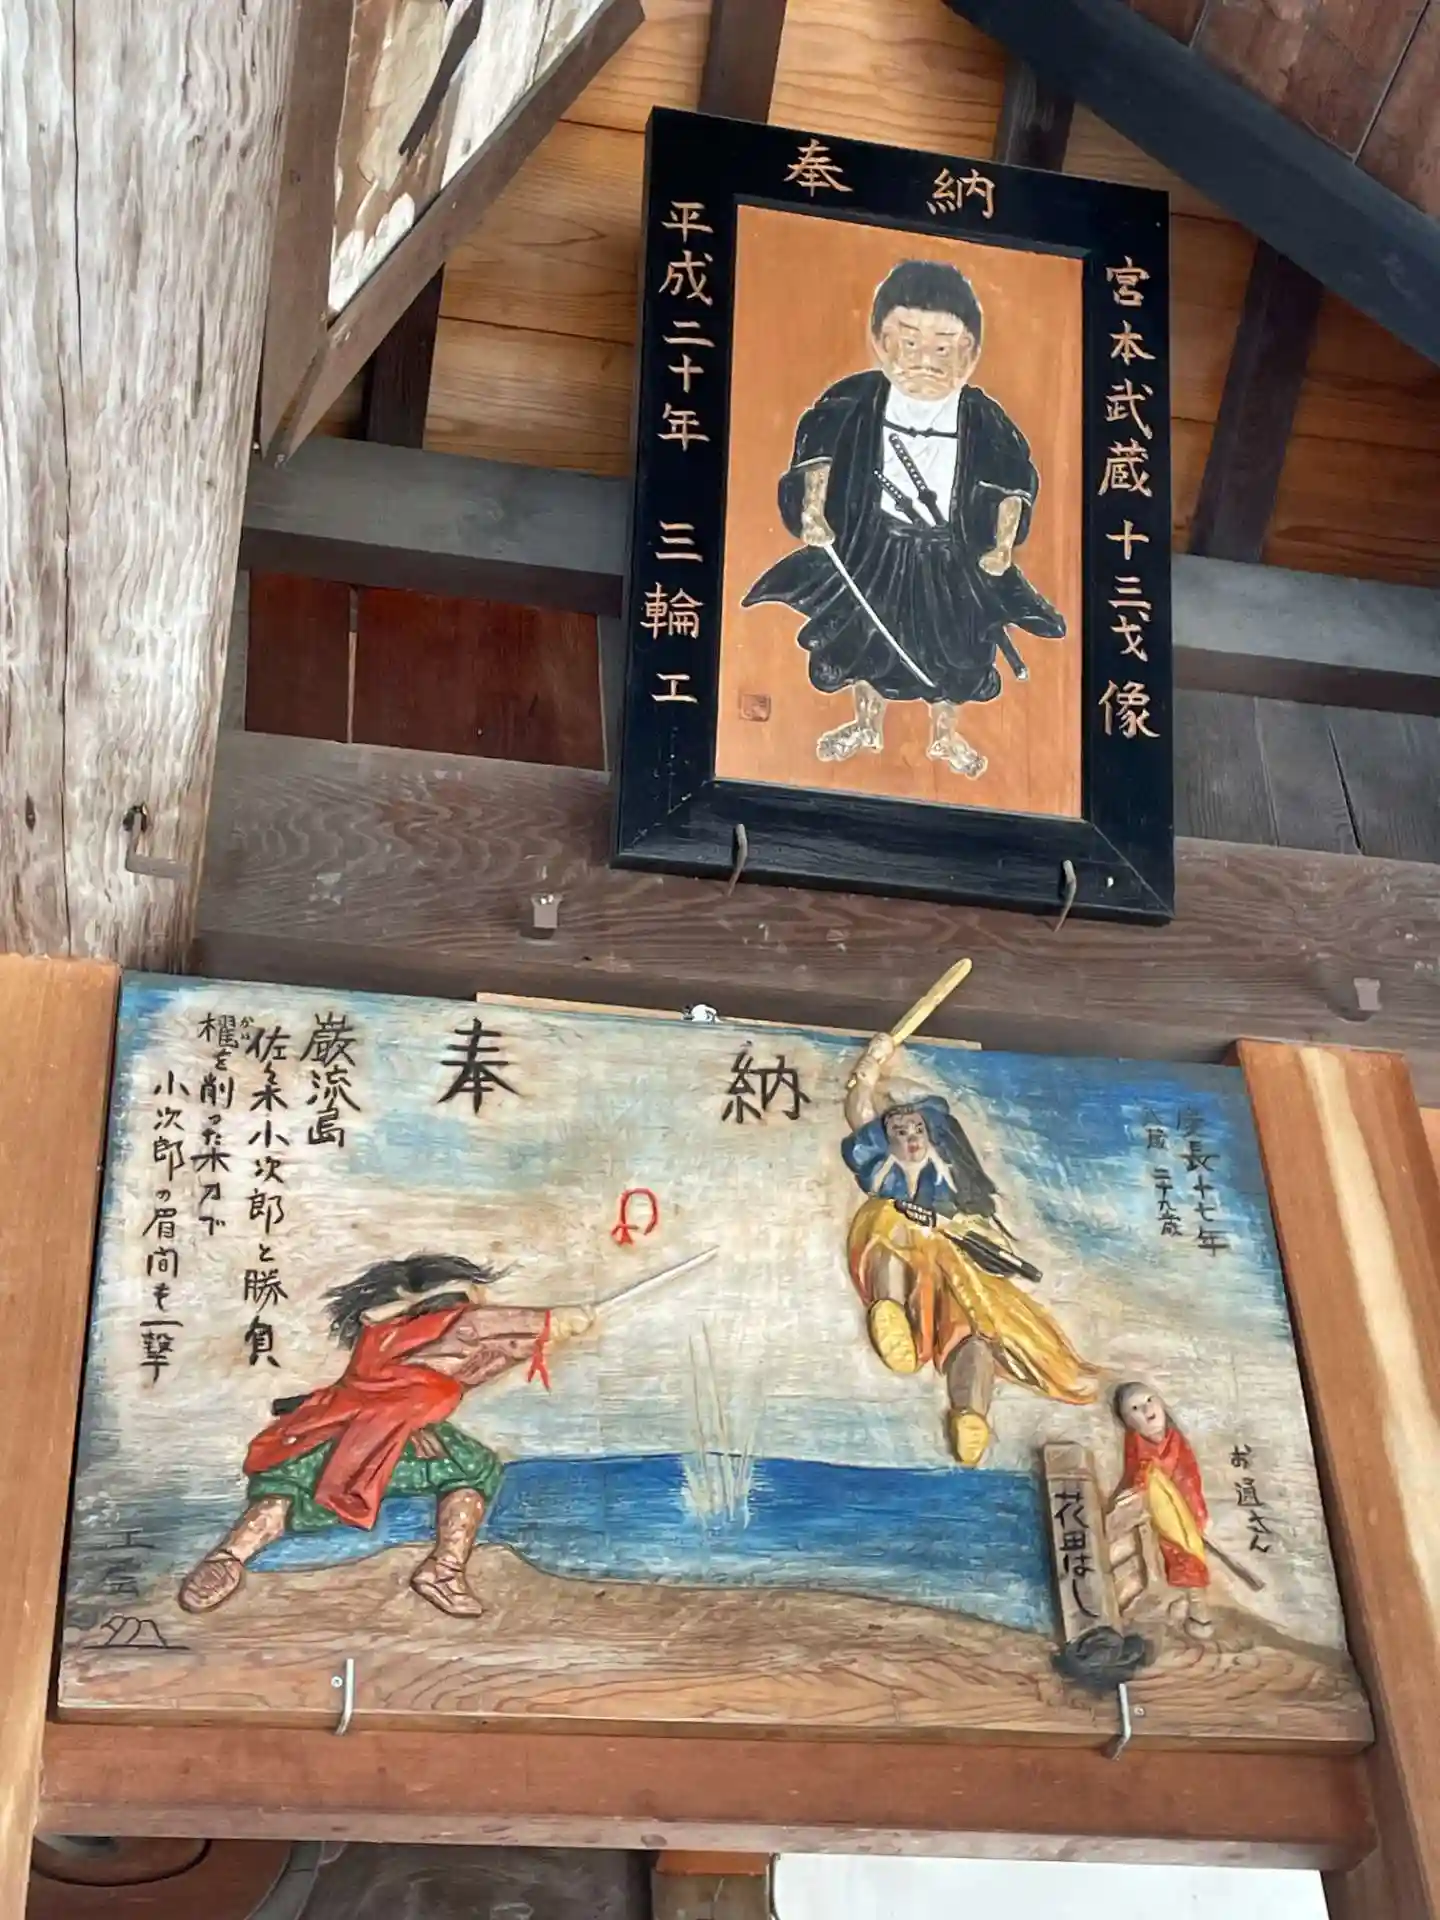 奉納
宮本武蔵十三才像
平成二十年 三輪工
奉納
慶長十七年
武蔵 二十九歳
巌流島
佐々木小次郎と勝負
かい
櫂を削った木刀で
小次郎の眉間を一撃
お通さん
花田はし